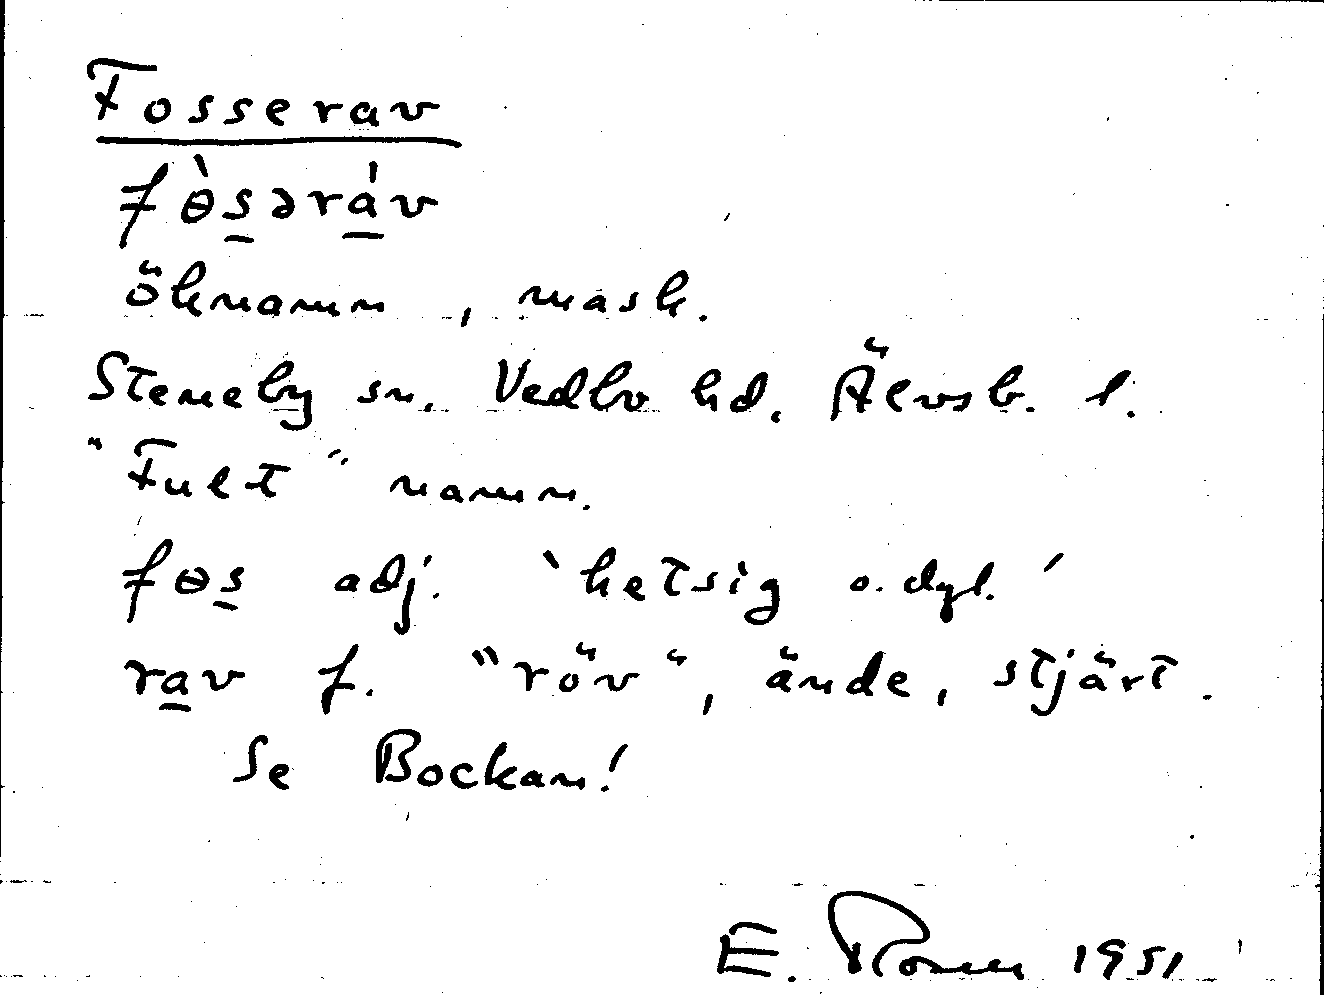 Fosserav
fɵ̀səráv
öknamn, mask.
Steneby sn. Vedbo hd. Älvsb. l.
"Fult" namn.
fɵs adj. 'hetsig o. dyl.'
rav f. "röv", ände, stjärt.
Se Bockan!
E. 1951